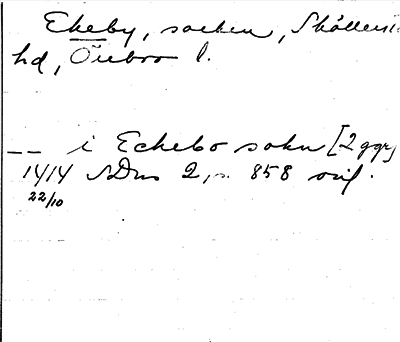 Ekeby, socken, Skölleris
hd, Örebro l.
-- i Eckebo sokn [2 ggr]
14/14 SDns 2, s. 858 orig.
22/10